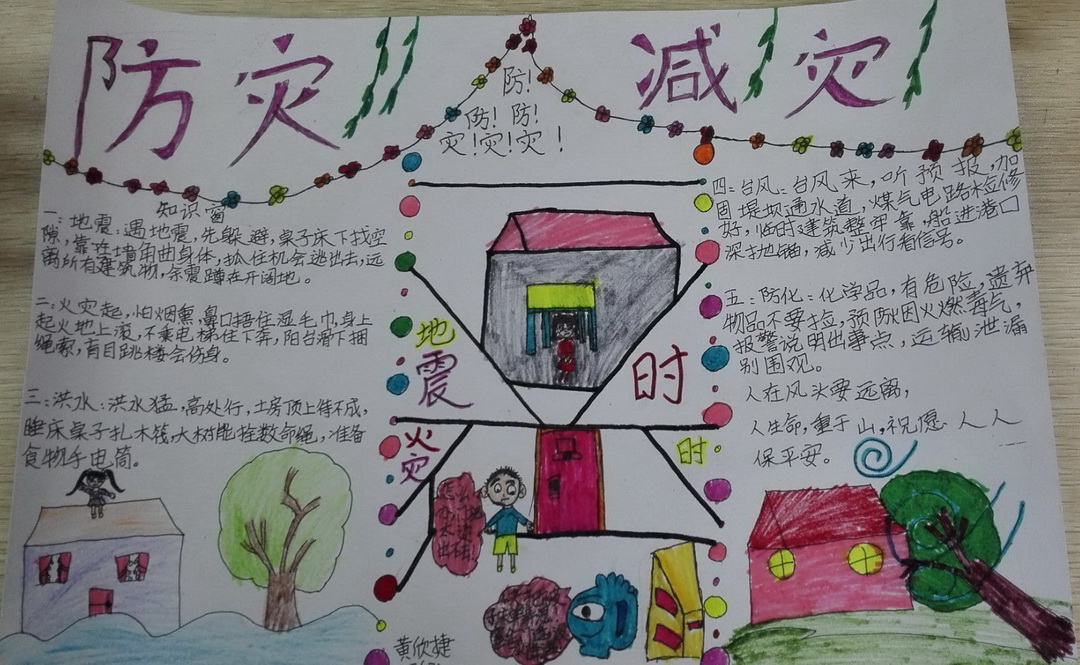 防灾 减灾
防!
防! 防!
灾!灾!灾!
知识窗
一:地震:遇地震,先躲避,桌子床下找空
隙,靠在墙角曲身体,抓住机会逃出去,远
离所有建筑物,余震蹲在开阔地。
二:火灾起,怕烟熏,鼻口捂住湿毛巾,身上
起火地上滚,不乘电梯往下奔,阳台滑下捆
绳索,盲目跳楼会伤身。
三:洪水:洪水猛,高处行,土房顶上待不成,
睡床桌子扎木筏,大树能拴救命绳,准备
食物手电筒。
地震时
火灾时
怎么门打不开
黄欣捷
四:台风:台风来,听预报,加
固堤坝通水道,煤气电路检修
好,临时建筑整牢靠,船进港口
深抛锚,减少出行看信号。
五:防化:化学品,有危险,遗弃
物品不要捡,预防因火燃毒气,
报警说明出事点,运输泄漏
别围观。
人在风头要远离,
人生命,重于山,祝愿人人
保平安。